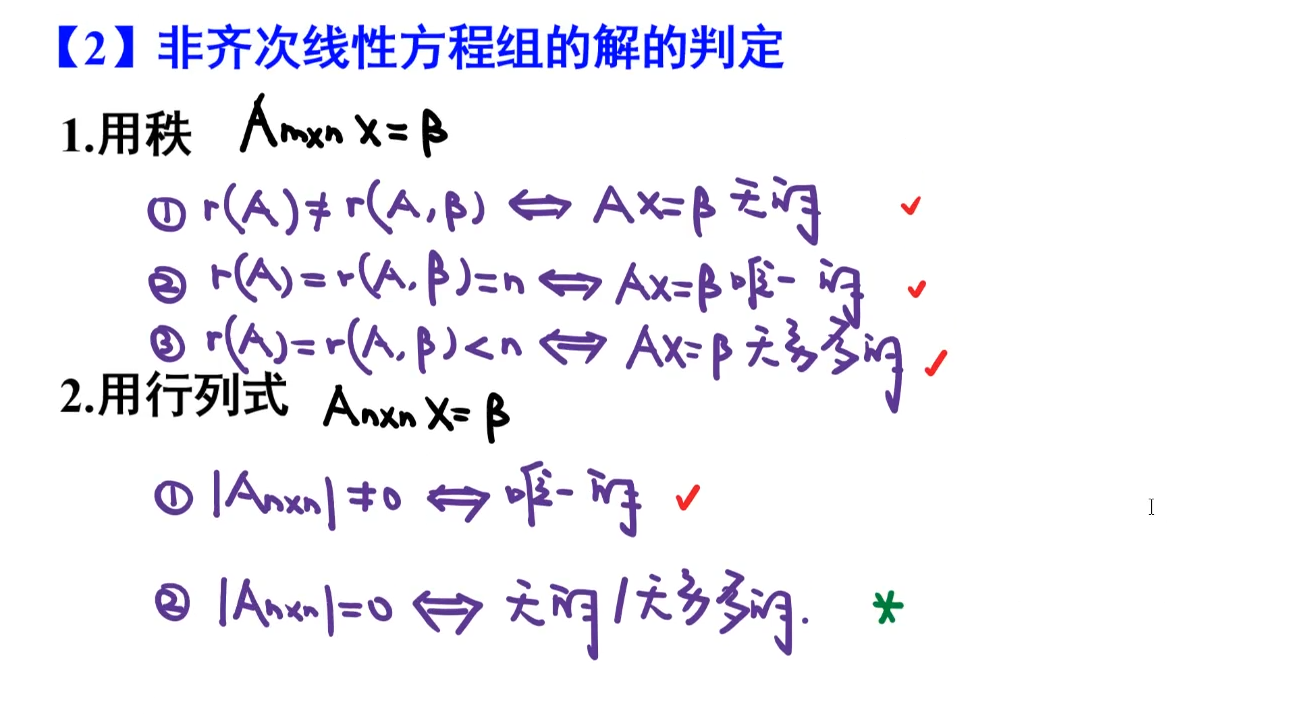 【2】非齐次线性方程组的解的判定
1.用秩 Am×n X=β
① r(A)≠r(A,β) ⇔ AX=β 无解
② r(A)=r(A,β)=n ⇔ AX=β 唯一解
③ r(A)=r(A,β)<n ⇔ AX=β 无穷多解
2.用行列式 An×n X=β
① |An×n|≠0 ⇔ 唯一解
② |An×n|=0 ⇔ 无解/无穷多解.